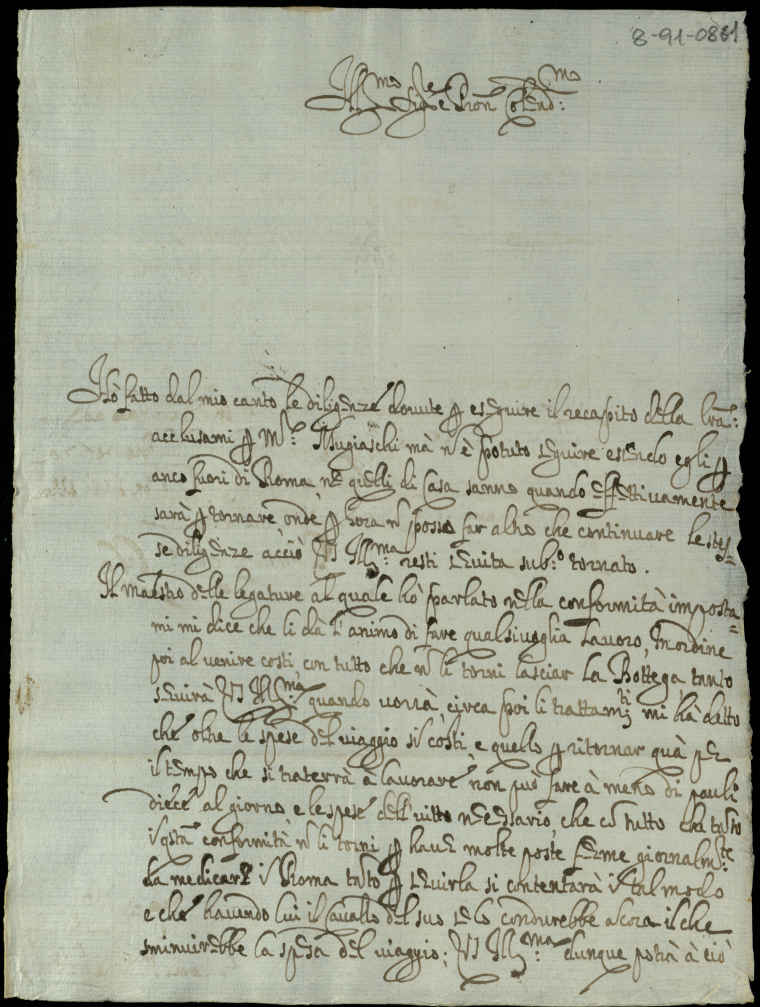 8-91-0881
Ill.mo Sig.re e Pron Colend.mo:
Hò fatto dal mio canto le diligenze douute p eseguire il recapito della lra:
acclusami p M.r: Mugiaschi mà ñ è potuto seguire essendo egli p
anco fuori di Roma ne quelli di Casa sanno quando effettiuamente
sarà p tornare onde p hora ñ posso far altro che continuare le stes=
se diligenze acciò VS Ill.ma: resti seruita sub.o tornato.
Il maestro delle legature al quale hò parlato nella conformità imposta=
mi mi dice che li dà l'animo di fare qualsiuoglia lauoro, In ordine
poi al uenire costi con tutto che ñ li torni lasciar la Bottega, tanto
seruirà VS Ill.ma quando uorrà, circa poi li trattam.ti mi hà detto
che oltre le spese del uiaggio sì costi, e quello p ritornar quà per
il tempo che si tratterrà à lauorare non può fare à meno di pauli
diece al giorno e le spese dell'uitto necessario, che cõ tutto che tãto
ĩ qsta conformità ñ li torni p hauer molte poste ferme giornalm.te:
da medicare ĩ Roma tãto p seruirla si contentarà ĩ tal modo
e che hauendo lui il cauallo del suo se lo condurebbe alcora il che
sminuirebbe la spesa del uiaggio; VS Ill.ma: dunque potrà à ciò